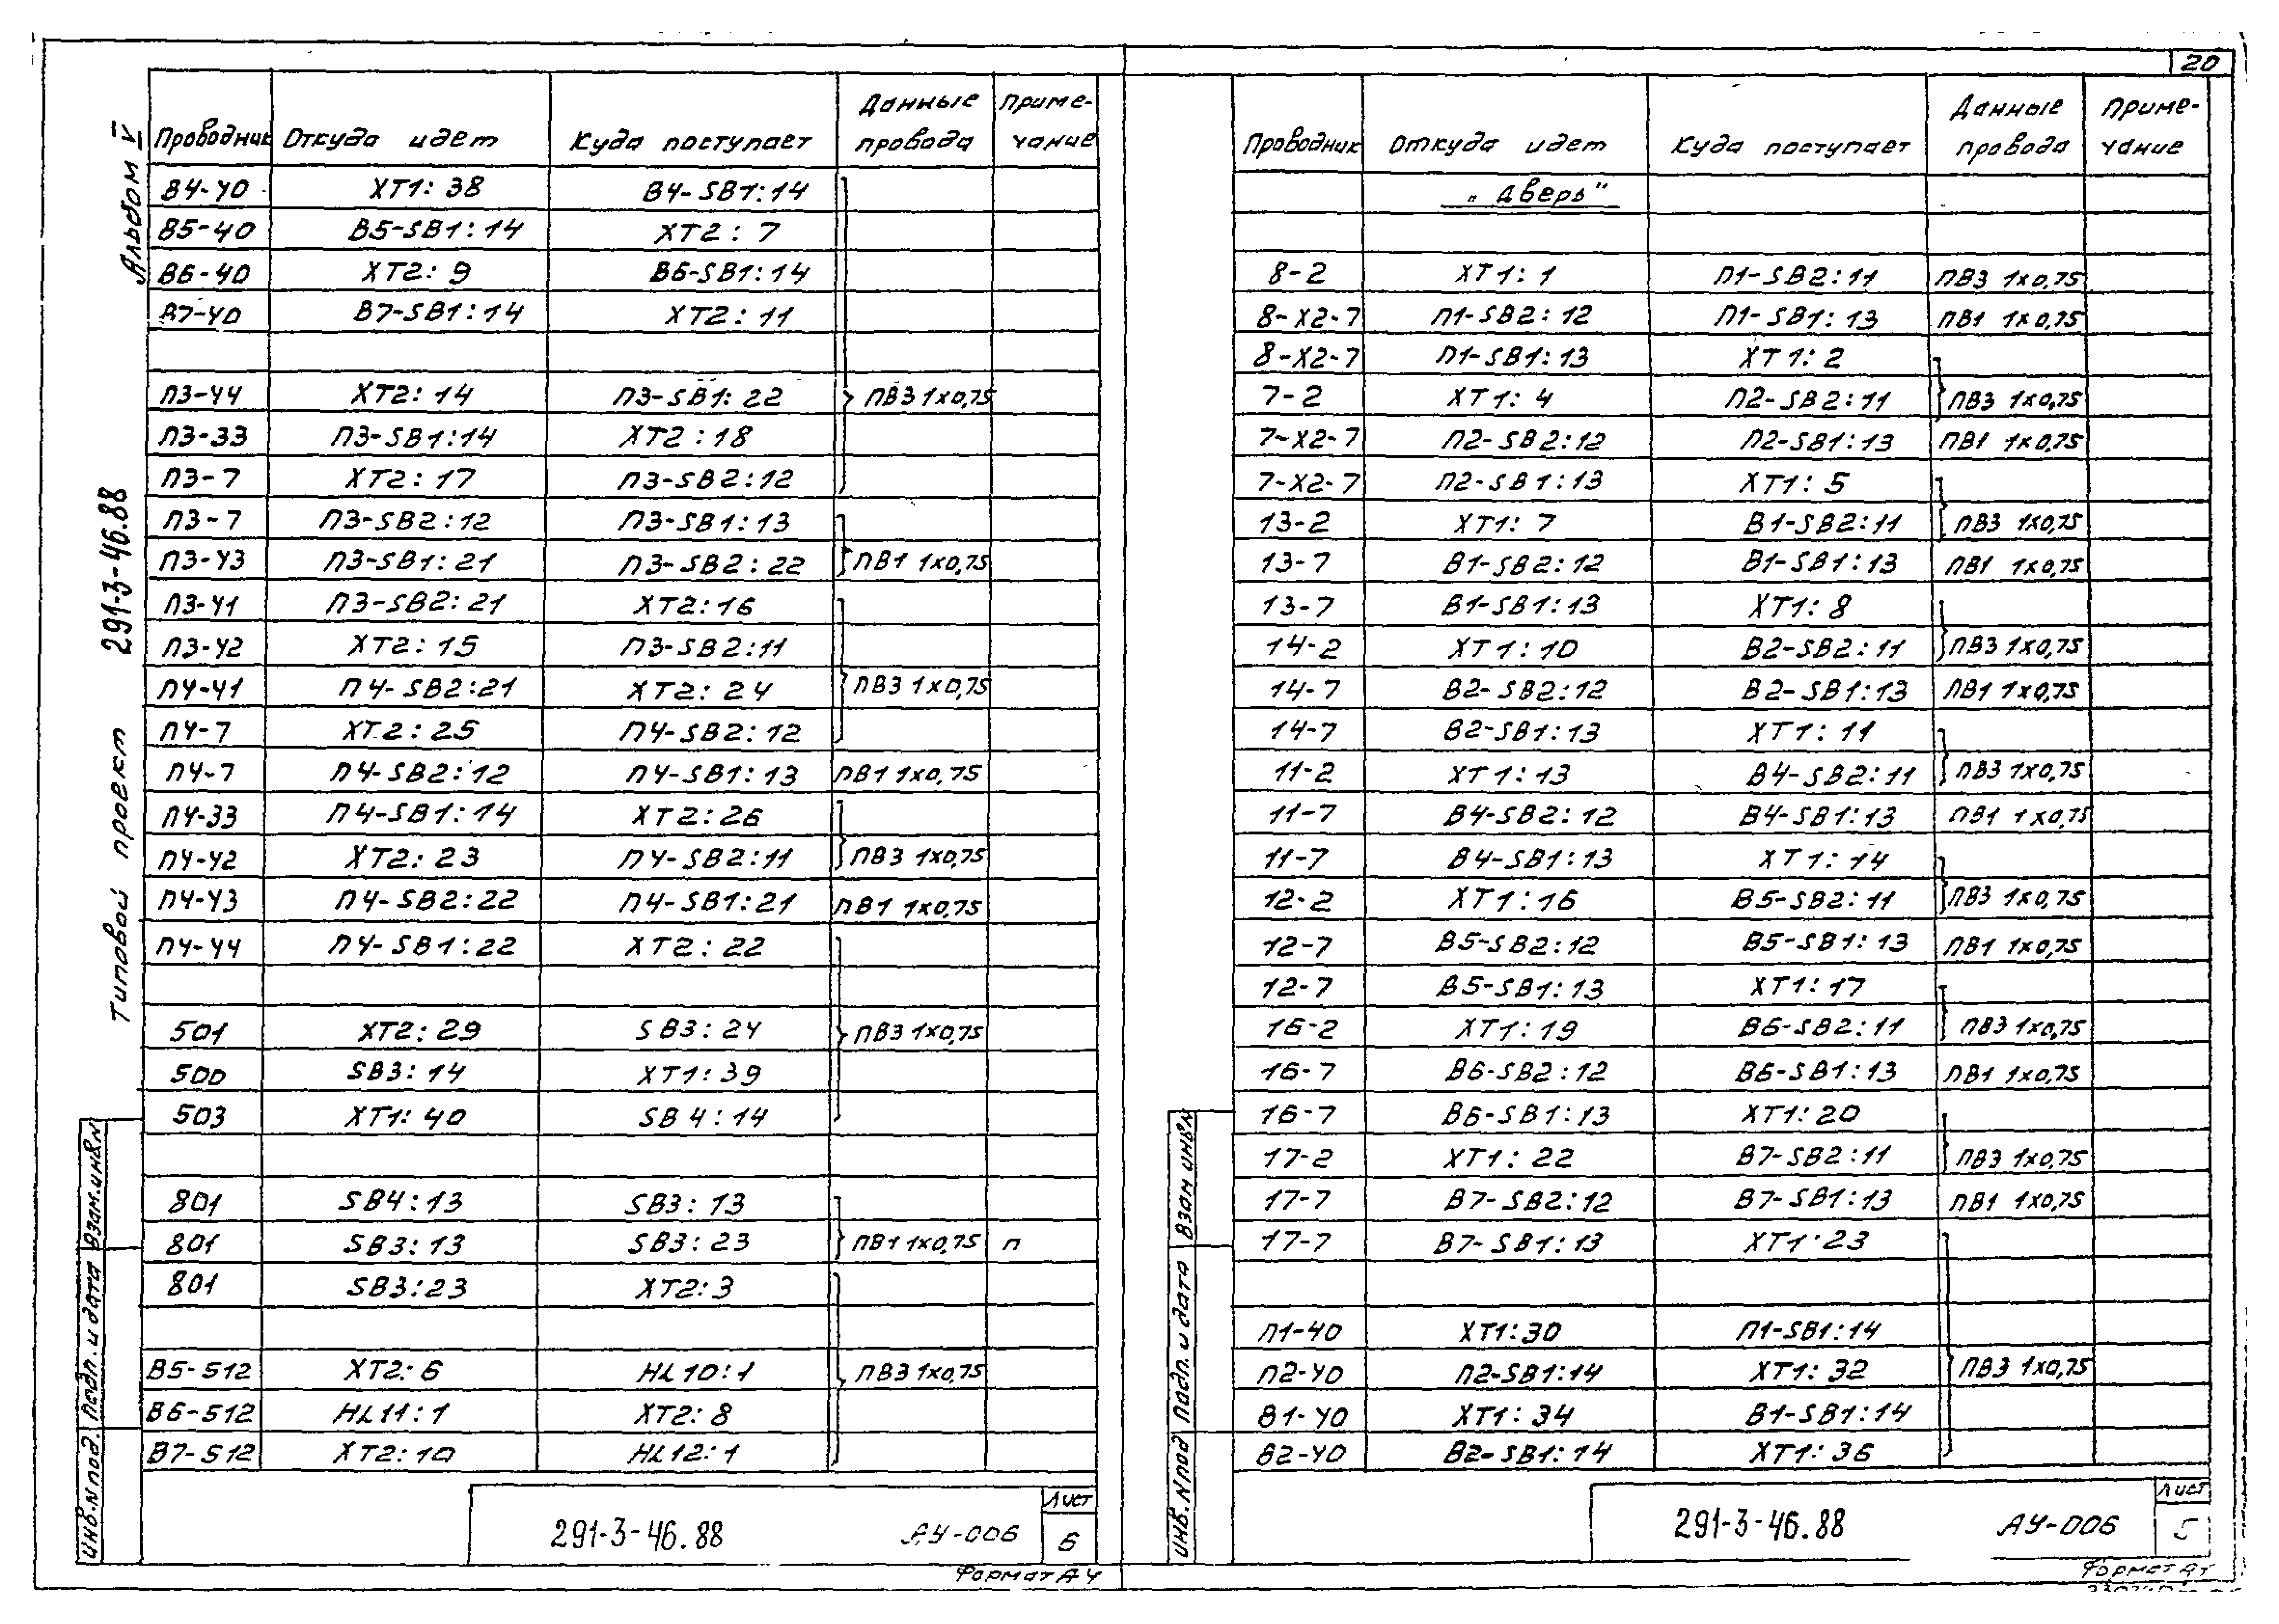 20
Альбом V
Типовой проект 291-3-46.88
Проводник Откуда идет Куда поступает Данные провода Приме-чание
В4-40 XT1:38 В4-SB1:14
В5-40 В5-SB1:14 XT2:7
В6-40 XT2:9 В6-SB1:14
В7-40 В7-SB1:14 XT2:11
П3-44 XT2:14 П3-SB1:22 ПВ3 1x0,75
П3-33 П3-SB1:14 XT2:18
П3-7 XT2:17 П3-SB2:12
П3-7 П3-SB2:12 П3-SB1:13
П3-43 П3-SB1:21 П3-SB2:22 ПВ1 1x0,75
П3-41 П3-SB2:21 XT2:16
П3-42 XT2:15 П3-SB2:11
П4-41 П4-SB2:21 XT2:24 ПВ3 1x0,75
П4-7 XT2:25 П4-SB2:12
П4-7 П4-SB2:12 П4-SB1:13 ПВ1 1x0,75
П4-33 П4-SB1:14 XT2:26
П4-42 XT2:23 П4-SB2:11 ПВ3 1x0,75
П4-43 П4-SB2:22 П4-SB1:21 ПВ1 1x0,75
П4-44 П4-SB1:22 XT2:22
501 XT2:29 SB3:24 ПВ3 1x0,75
500 SB3:14 XT1:39
503 XT1:40 SB4:14
801 SB4:13 SB3:13
801 SB3:13 SB3:23 ПВ1 1x0,75 п
801 SB3:23 XT2:3
В5-512 XT2:6 HL10:1 ПВ3 1x0,75
В6-512 HL11:1 XT2:8
В7-512 XT2:10 HL12:1
Инв.N под. Подп. и дата Взам.инв.N
291-3-46.88 АУ-006 Лист 6
Формат А4
Проводник Откуда идет Куда поступает Данные провода Приме-чание
„Дверь"
8-2 XT1:1 П1-SB2:11 ПВ3 1x0,75
8-X2-7 П1-SB2:12 П1-SB1:13 ПВ1 1x0,75
8-X2-7 П1-SB1:13 XT1:2
7-2 XT1:4 П2-SB2:11 ПВ3 1x0,75
7-X2-7 П2-SB2:12 П2-SB1:13 ПВ1 1x0,75
7-X2-7 П2-SB1:13 XT1:5
13-2 XT1:7 В1-SB2:11 ПВ3 1x0,75
13-7 В1-SB2:12 В1-SB1:13 ПВ1 1x0,75
13-7 В1-SB1:13 XT1:8
14-2 XT1:10 В2-SB2:11 ПВ3 1x0,75
14-7 В2-SB2:12 В2-SB1:13 ПВ1 1x0,75
14-7 В2-SB1:13 XT1:11
11-2 XT1:13 В4-SB2:11 ПВ3 1x0,75
11-7 В4-SB2:12 В4-SB1:13 ПВ1 1x0,75
11-7 В4-SB1:13 XT1:14
12-2 XT1:16 В5-SB2:11 ПВ3 1x0,75
12-7 В5-SB2:12 В5-SB1:13 ПВ1 1x0,75
12-7 В5-SB1:13 XT1:17
16-2 XT1:19 В6-SB2:11 ПВ3 1x0,75
16-7 В6-SB2:12 В6-SB1:13 ПВ1 1x0,75
16-7 В6-SB1:13 XT1:20
17-2 XT1:22 В7-SB2:11 ПВ3 1x0,75
17-7 В7-SB2:12 В7-SB1:13 ПВ1 1x0,75
17-7 В7-SB1:13 XT1:23
П1-40 XT1:30 П1-SB1:14
П2-40 П2-SB1:14 XT1:32 ПВ3 1x0,75
В1-40 XT1:34 В1-SB1:14
В2-40 В2-SB1:14 XT1:36
Инв.N под Подп. и дата Взам инв.N
291-3-46.88 АУ-006 Лист 5
Формат А4